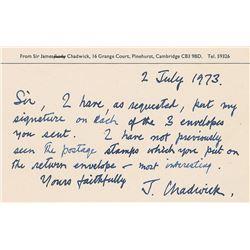 From Sir James Chadwick, 16 Grange Court, Pinehurst, Cambridge CB3 9BD. Tel. 59326
2 July 1973.
Sir, I have, as requested, put my
signature on each of the 3 envelopes
you sent. I have not previously
seen the postage stamps which you put
on the return envelope – most interesting.
Yours faithfully
J. Chadwick.